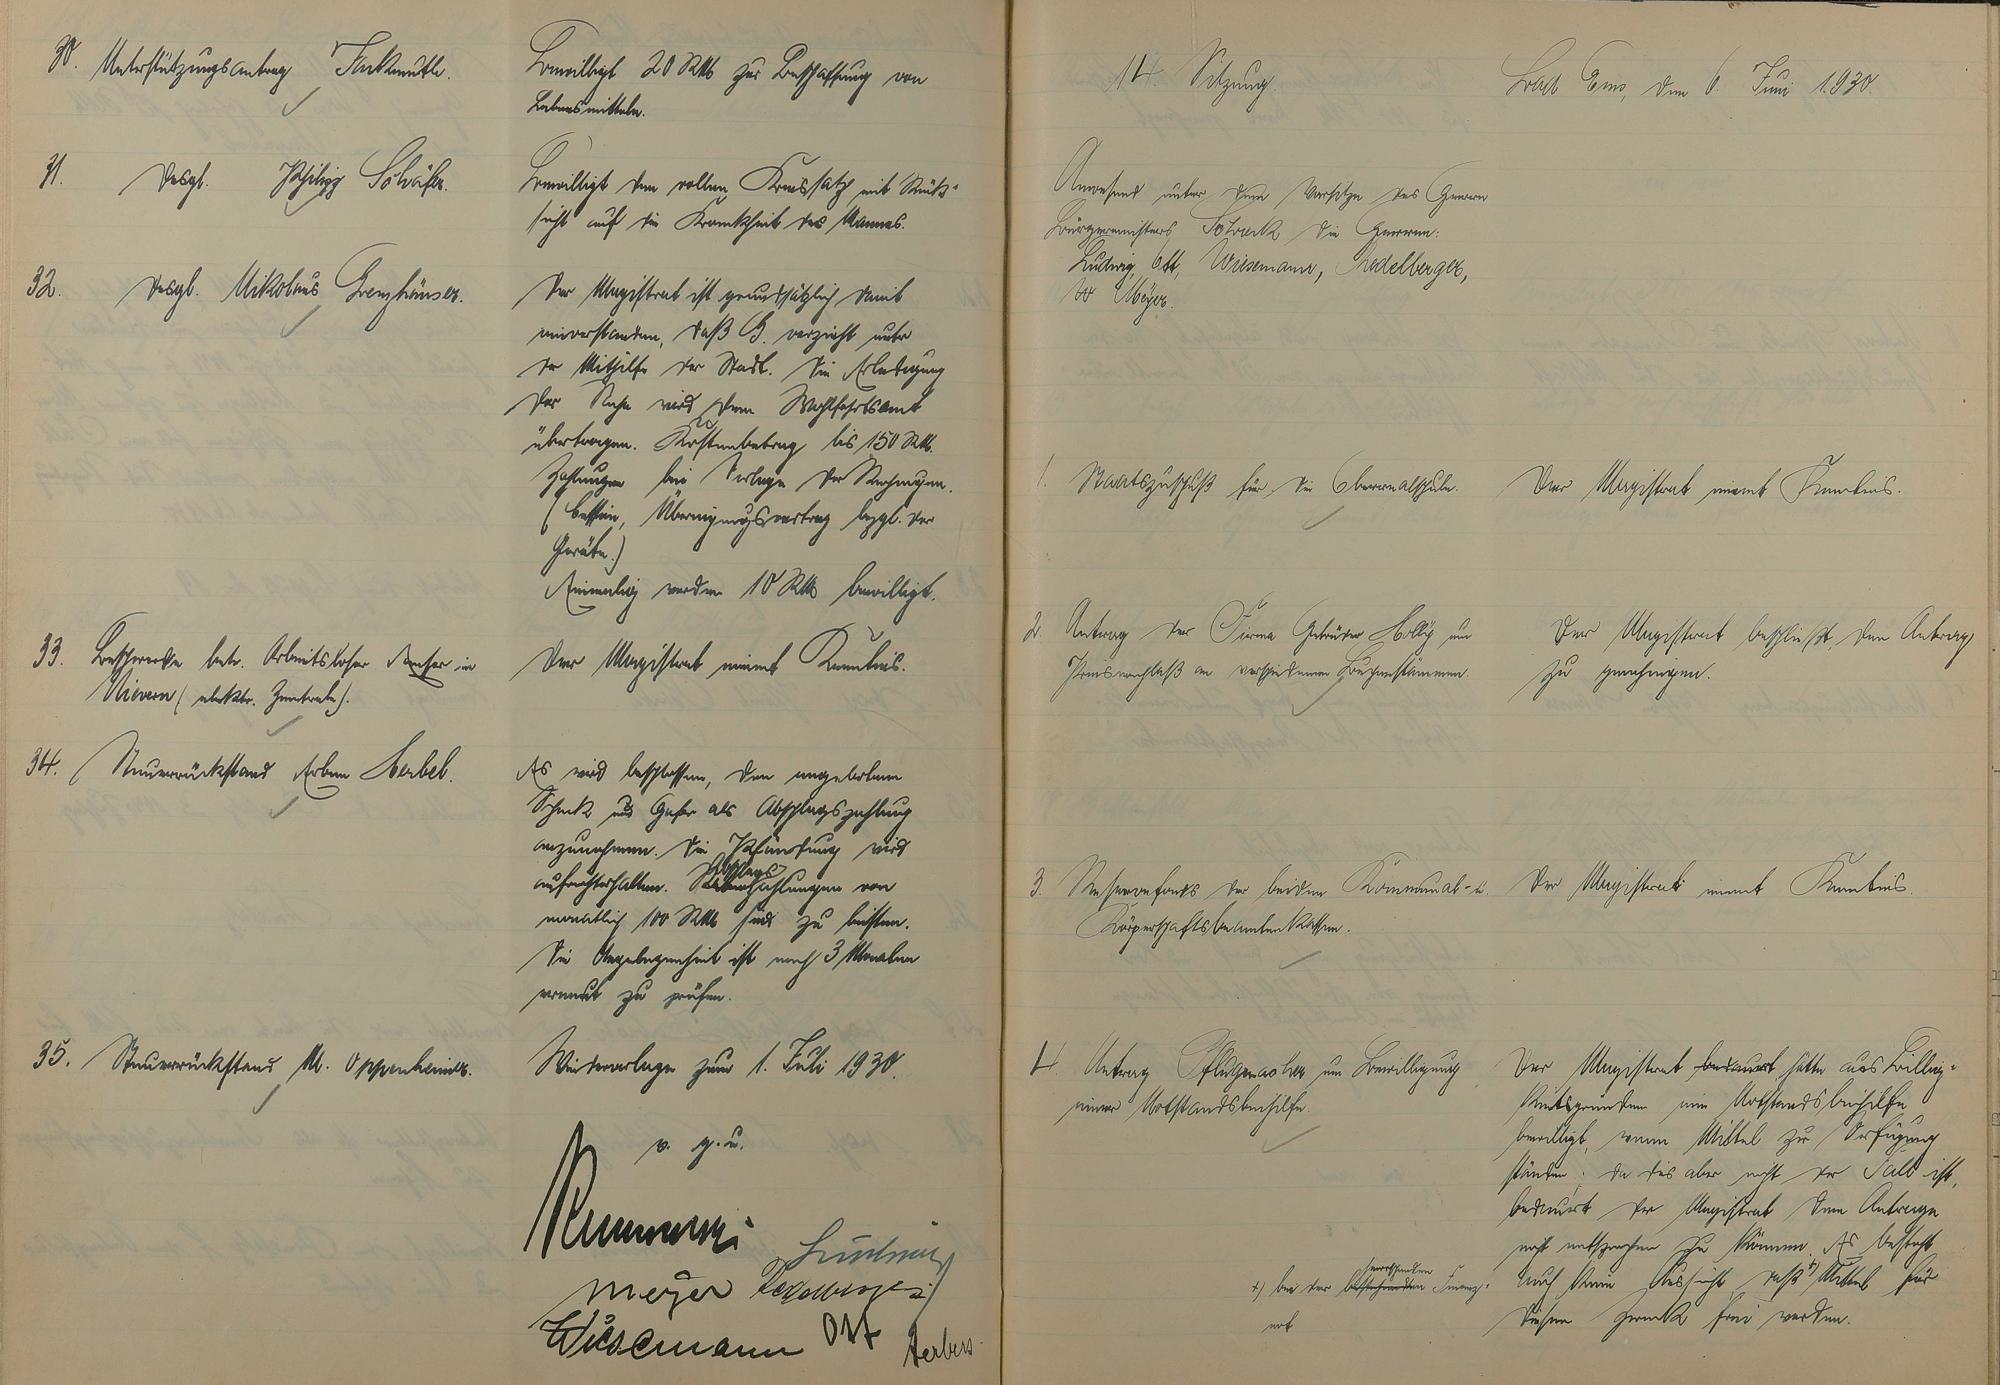 30. Unterstützungsantrag
Bewilligt 20 RM zur Beschaffung von
Lebensmitteln.
31. desgl. Philipp Schäfer.
Bewilligt den vollen Kreissatz mit Rück-
sicht auf die Krankheit des Mannes.
32. desgl. Nikolaus Grenzhäuser.
Der Magistrat ist grundsätzlich damit
einverstanden, daß G. verzieht unter
der Mithilfe der Stadt. Die Erledigung
der Sache wird dem Wohlfahrtsamt
übertragen. Kostenbetrag bis 150 RM.
Zahlungen bei Vorlage der Rechnungen.
( Übereignungsvertrag bezgl. der
Geräte.)
Einmalig werden 10 RM bewilligt.
33. Beschwerde betr. Arbeitsloser in
Nievern (elektr. Zentrale).
Der Magistrat nimmt Kenntnis.
34. Steuerrückstand Erben Herbel.
Es wird beschlossen, den angebotenen
Scheck als Abschlagszahlung
anzunehmen. Die Pfändung wird
Abschlags
aufrechterhalten. zahlungen von
monatlich 100 RM sind zu leisten.
Die Angelegenheit ist nach 3 Monaten
erneut zu prüfen.
35. Steuerrückstand M. Oppenheimer.
Wiedervorlage zum 1. Juli 1930.
v. g. u.
Ludwig
Meyer Redelberger
Wiesemann Ott
14. Sitzung.
Bad Ems, den 6. Juni 1930.
Anwesend unter dem Vorsitze des Herrn
Bürgermeisters die Herren:
Ludwig, Ott, Wiesemann, Redelberger,
Meyer.
1. Staatszuschuß für die Oberrealschule.
Der Magistrat nimmt Kenntnis.
2. Antrag der Firma Gebrüder um
Preisnachlaß an verschiedenen Buchenstämmen.
Der Magistrat beschließt, den Antrag
zu genehmigen.
3. Reservefonds der beiden Kommunal- u.
Körperschaftsbeamtenkassen.
Der Magistrat nimmt Kenntnis.
4. Antrag Pflugmacher um Bewilligung
einer Notstandsbeihilfe.
Der Magistrat bedauert hätte aus Billig-
keitsgründen eine Notstandsbeihilfe
bewilligt, wenn Mittel zur Verfügung
ständen; da dies aber nicht der Fall ist,
bedauert der Magistrat dem Antrage
nicht entsprechen zu können. Es besteht
auch keine Aussicht, daß x) Mittel für
diesen Zweck frei werden.
herrschenden
x) bei der bestehenden Finanz-
not